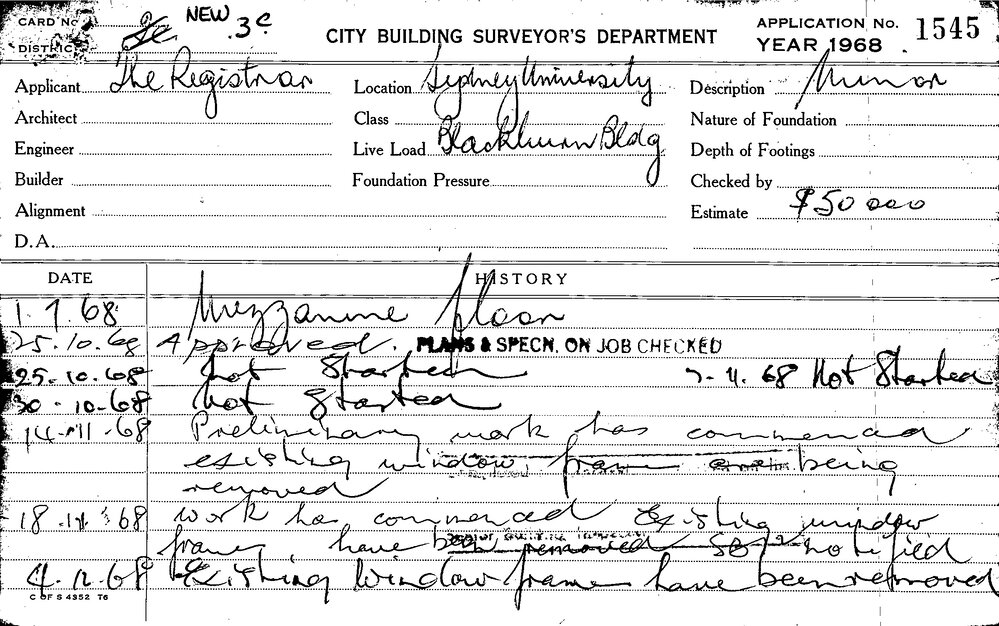 CARD No. NEW 3c
DISTRICT
CITY BUILDING SURVEYOR'S DEPARTMENT
APPLICATION No. 1545
YEAR 1968
Applicant The Registrar Location Sydney University Description Minor
Architect Class Nature of Foundation
Engineer Live Load Blackburn Bldg Depth of Footings
Builder Foundation Pressure Checked by
Alignment Estimate $50000
D.A.
DATE HISTORY
1.7.68 Mezzanine floor
25.10.68 Approved. PLANS & SPECN. ON JOB CHECKED
25.10.68 Not Started 7.11.68 Not Started
30.10.68 Not Started
14.11.68 Preliminary work has commenced
existing window frame being
removed
18.11.68 Work has commenced Existing window
frames have been removed notified
4.12.68 Existing Window frame have been removed
C OF S 4352 T6